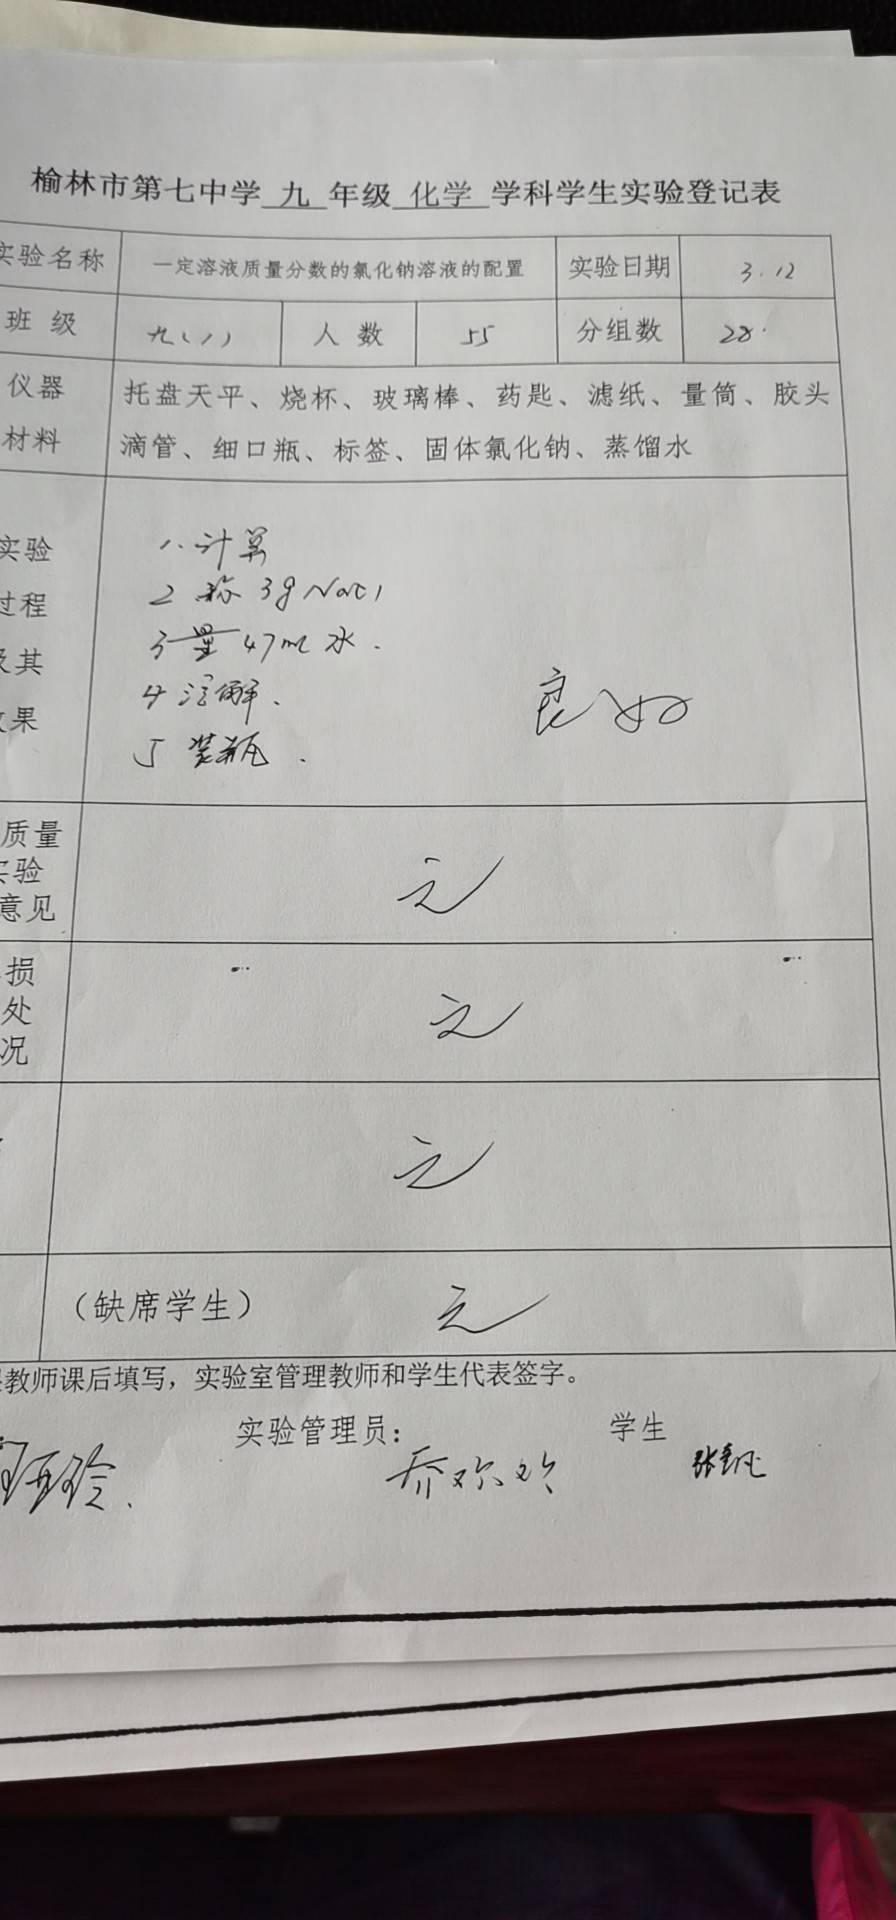 榆林市第七中学 九 年级 化学 学科学生实验登记表
实验名称 一定溶液质量分数的氯化钠溶液的配置 实验日期 3.12
班 级 九(1) 人 数 55 分组数 28
仪器 托盘天平、烧杯、玻璃棒、药匙、滤纸、量筒、胶头
材料 滴管、细口瓶、标签、固体氯化钠、蒸馏水
1.计算
实验
2 称 3g NaCl
过程
3 量 47ml 水.
及其
4 溶解.
良好
效果
5 装瓶.
质量
实验 无
意见
损
处 无
况
无
(缺席学生) 无
教师课后填写,实验室管理教师和学生代表签字。
实验管理员: 学生
乔欢欢